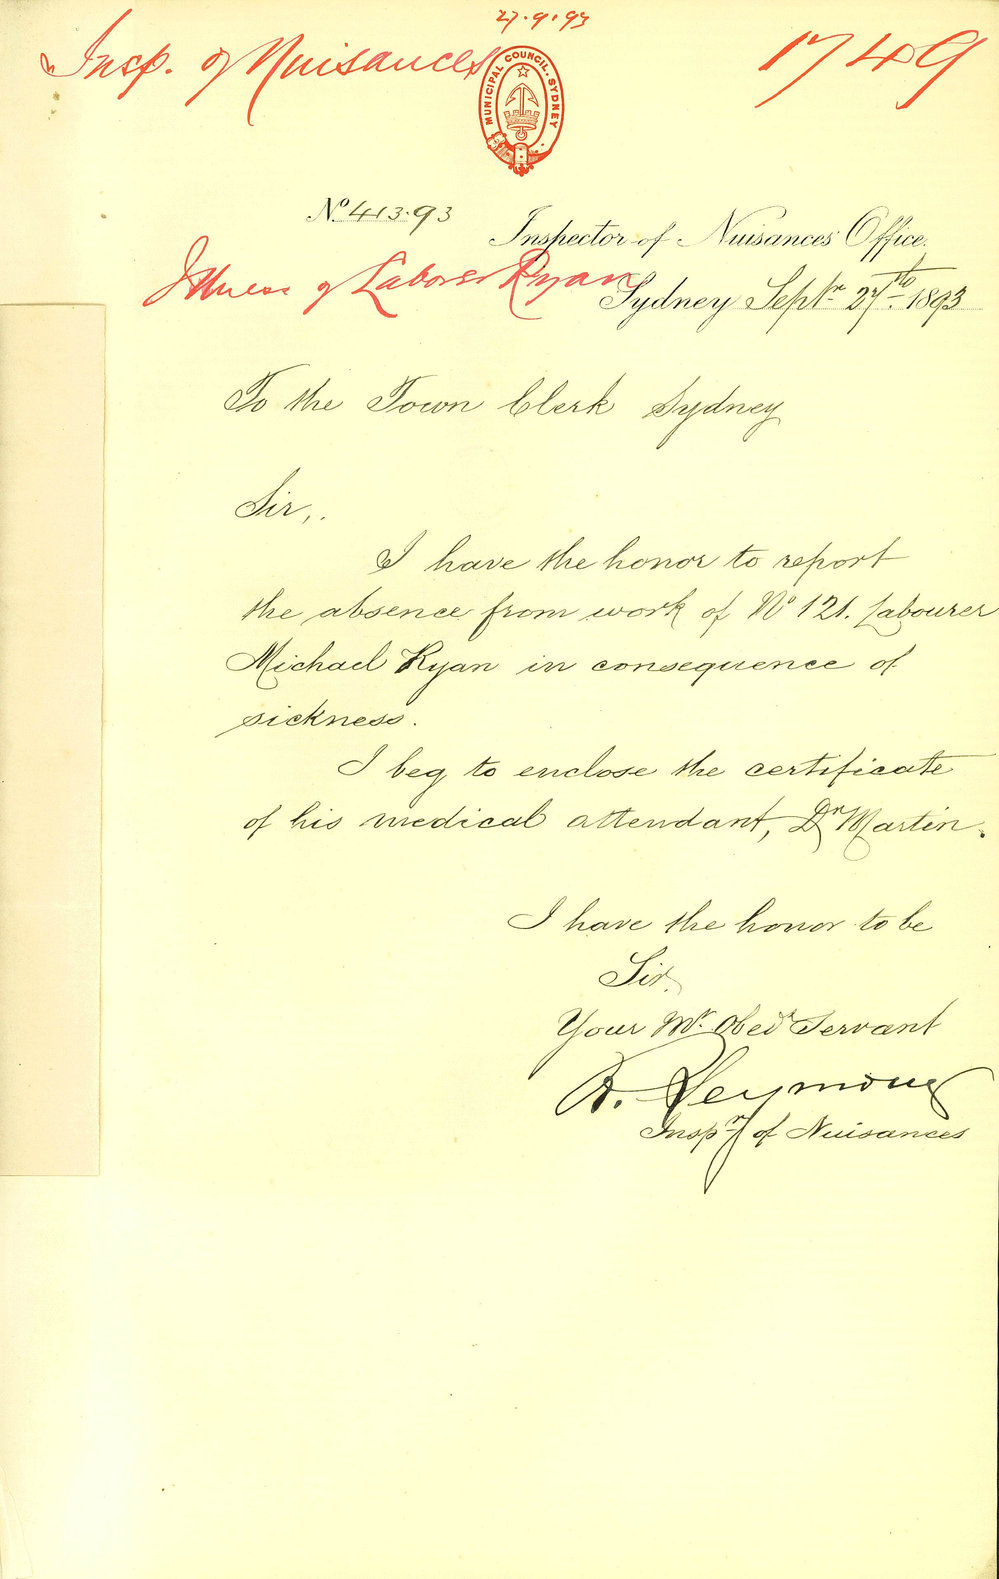 27.9.93
Insp. of Nuisances
1749
MUNICIPAL COUNCIL. SYDNEY
No 413.93
Inspector of Nuisances' Office,
Illness of Laborer Ryan
Sydney Septr 27th 1893
To the Town Clerk Sydney
Sir,.
I have the honor to report
the absence from work of No 121. Labourer
Michael Ryan in consequence of
sickness.
I beg to enclose the certificate
of his medical attendant, Dr Martin.
I have the honor to be
Sir,
Your Mt. Obedt Servant
R. Seymour
Inspr of Nuisances